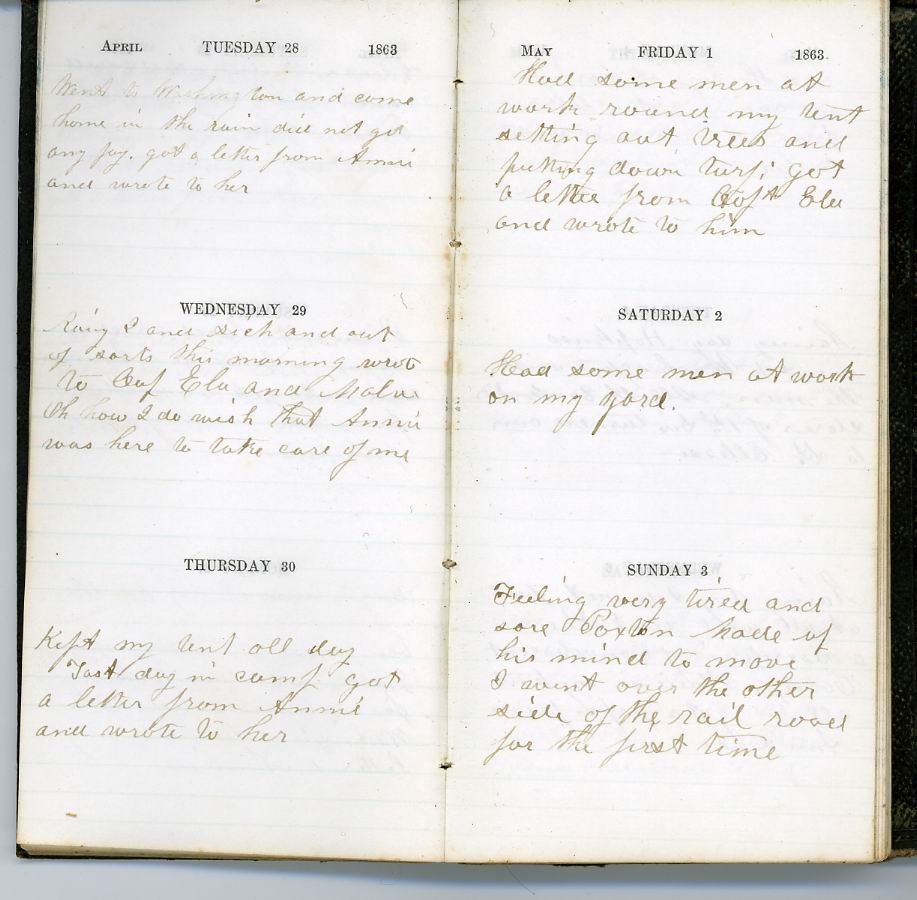 April TUESDAY 28 1863
Went to Washington and come
home in the rain did not get
any pay. got a letter from Annie
and wrote to her
WEDNESDAY 29
Rainy I and sick and out
of sorts this morning wrote
to Ela and
Oh how I do wish that Annie
was here to take care of me
THURSDAY 30
Kept my tent all day
day in camp got
a letter from Annie
and wrote to her
May FRIDAY 1 1863.
Had some men at
work round my tent
setting out trees and
putting down turf; got
a letter from Capt Ela
and wrote to him
SATURDAY 2
Had some men at work
on my yard.
SUNDAY 3
Feeling very tired and
sore Paxton made up
his mind to move
I went over the other
side of the rail road
for the first time